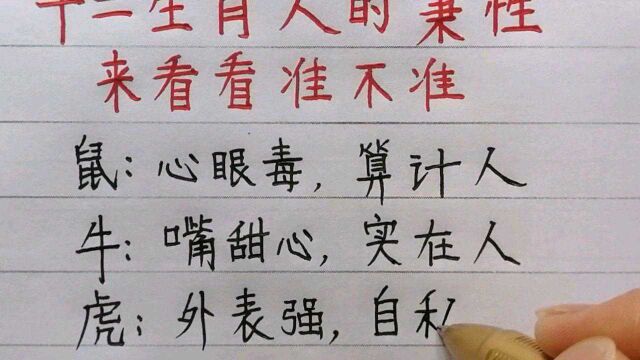 十二生肖人的秉性
来看看准不准
鼠：心眼毒，算计人
牛：嘴甜心，实在人
虎：外表强，自私